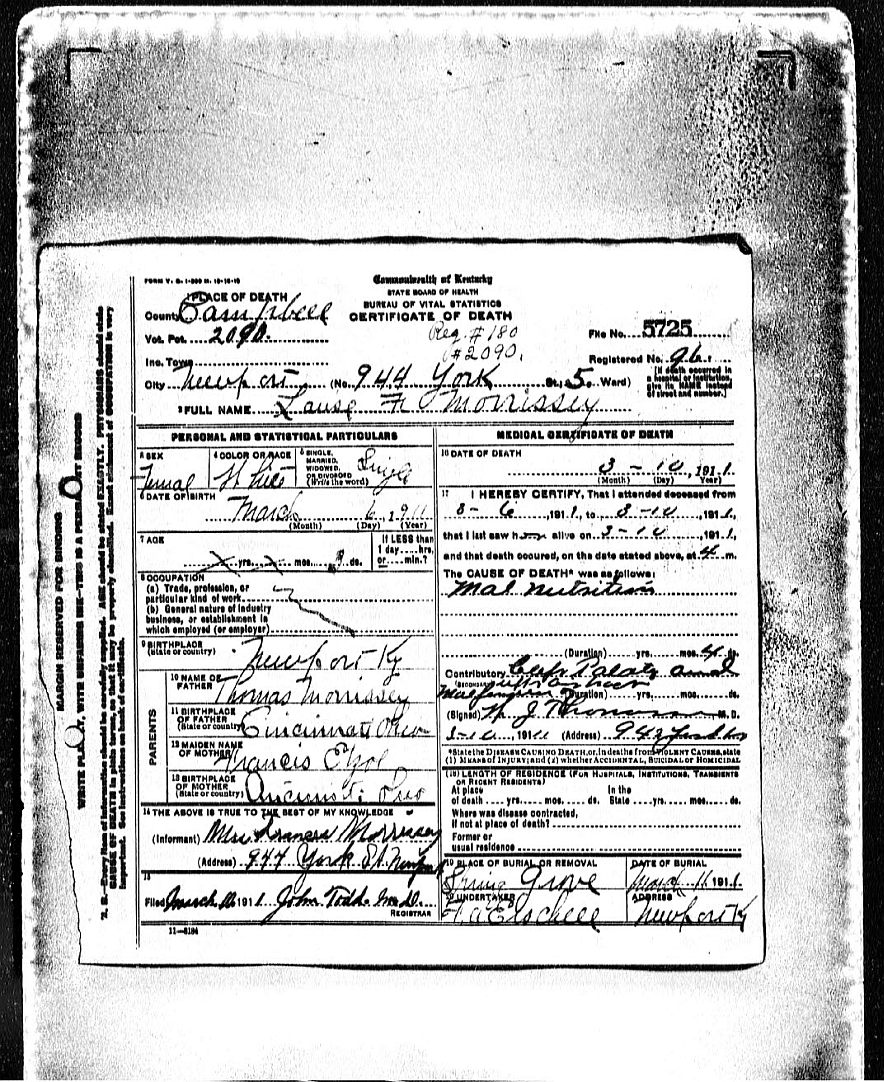 FORM V. S. 1-200 M. 12-16-10
Commonwealth of Kentucky
STATE BOARD OF HEALTH
BUREAU OF VITAL STATISTICS
CERTIFICATE OF DEATH
1 PLACE OF DEATH
County Campbell
Vot. Pct. 2090.
Reg. #180
#2090.
File No. 5725
Inc. Town
Registered No. 96
City Newport (No. 944 York St., 5 Ward)
[If death occurred in a hospital or institution, give its NAME instead of street and number.]
2 FULL NAME F. Morrissey
PERSONAL AND STATISTICAL PARTICULARS
3 SEX Femal
4 COLOR OR RACE White
5 SINGLE, MARRIED, WIDOWED, OR DIVORCED (Write the word) Single
6 DATE OF BIRTH
March 6, 1911
(Month) (Day) (Year)
7 AGE
x yrs. x mos. ds.
If LESS than 1 day hrs. or min.?
8 OCCUPATION
(a) Trade, profession, or particular kind of work
(b) General nature of industry business, or establishment in which employed (or employer)
9 BIRTHPLACE (State or country) Newport Ky
PARENTS
10 NAME OF FATHER Thomas Morrissey
11 BIRTHPLACE OF FATHER (State or country) Cincinnati Ohio
12 MAIDEN NAME OF MOTHER Francis
13 BIRTHPLACE OF MOTHER (State or country) Cincinnati Ohio
14 THE ABOVE IS TRUE TO THE BEST OF MY KNOWLEDGE
(Informant) Mrs Francis Morrissey
(Address) 944 York St. Newport
15
Filed March 1911 John Todd M.D.
REGISTRAR
11-5184
MEDICAL CERTIFICATE OF DEATH
16 DATE OF DEATH
3 - 10, 1911
(Month) (Day) (Year)
17 I HEREBY CERTIFY, That I attended deceased from
3 - 6, 1911, to 3 - 10, 1911,
that I last saw h alive on 3 - 10, 1911,
and that death occured, on the date stated above, at 4 m.
The CAUSE OF DEATH* was as follows:
Mal nutrition
(Duration) yrs. mos. 4 ds.
Contributory Cleft Palate and
(SECONDARY)
(Duration) yrs. mos. ds.
(Signed) J M. D.
3-10, 1911 (Address) 943 York
*State the DISEASE CAUSING DEATH, or, in deaths from VIOLENT CAUSES, state
(1) MEANS OF INJURY; and (2) whether ACCIDENTAL, SUICIDAL or HOMICIDAL
(18) LENGTH OF RESIDENCE (FOR HOSPITALS, INSTITUTIONS, TRANSIENTS OR RECENT RESIDENTS)
At place of death yrs. mos. ds. In the State yrs. mos. ds.
Where was disease contracted, if not at place of death?
Former or usual residence
19 PLACE OF BURIAL OR REMOVAL Spring Grove
DATE OF BURIAL March 11, 1911
20 UNDERTAKER
ADDRESS Newport Ky
MARGIN RESERVED FOR BINDING
WRITE PLAINLY, WITH UNFADING INK—THIS IS A PERMANENT RECORD
N. B.—Every item of information should be carefully supplied. AGE should be stated EXACTLY. PHYSICIANS should state
CAUSE OF DEATH in plain terms, so that it may be properly classified. Exact statement of OCCUPATION is very
important. See instructions on back of certificate.